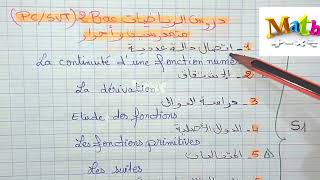 دروس الرياضيات 2 Bac (PC/SVT)
متمدرسين وأحرار
Math
1 - اتصال دالة عددية
La continuité d'une fonction numé
2 - الاشتقاق
La dérivation
3 - دراسة الدوال
Etude des fonctions
4 - الدوال الأصلية
Les fonctions primitives
5 - المتتاليات
Les suites
S1